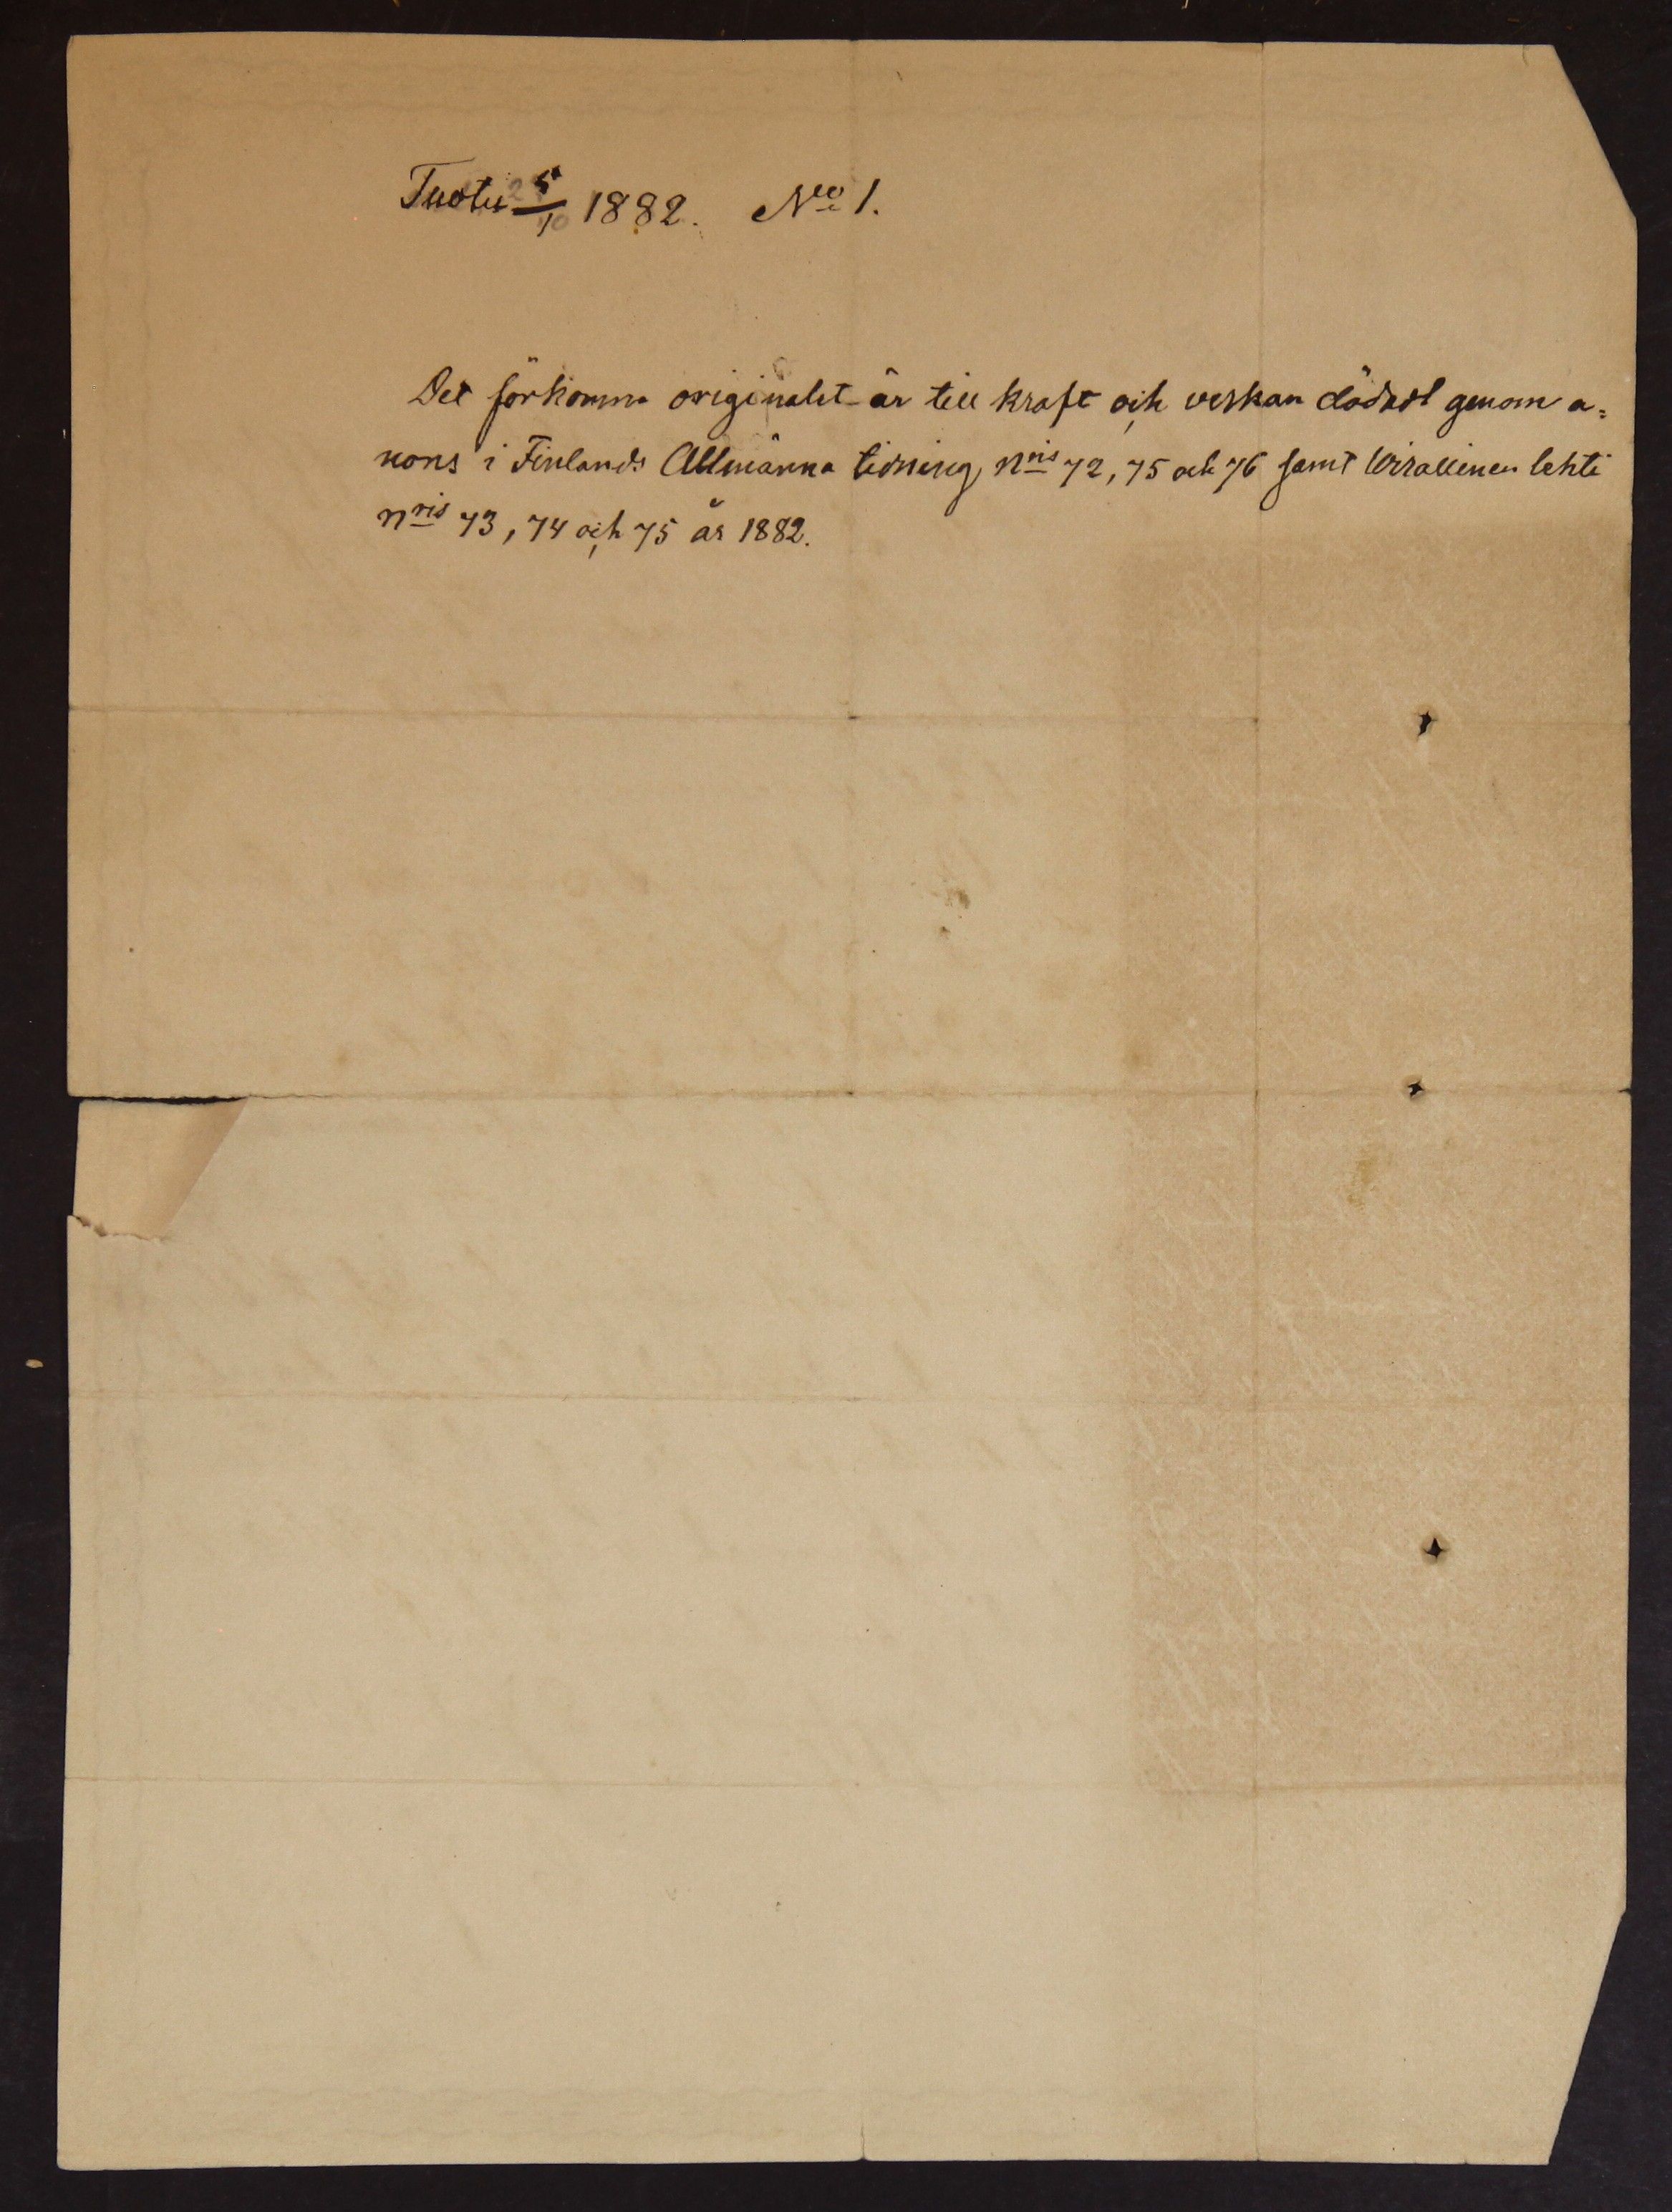 Tuotu 5/1 1882. No 1.
Det förkomna originalet är till kraft och verkan dödadt genom a=
nons i Finlands Allmänna tidning nris 72, 75 och 76 samt Wirallinen lehti
nris 73, 74 och 75 år 1882.